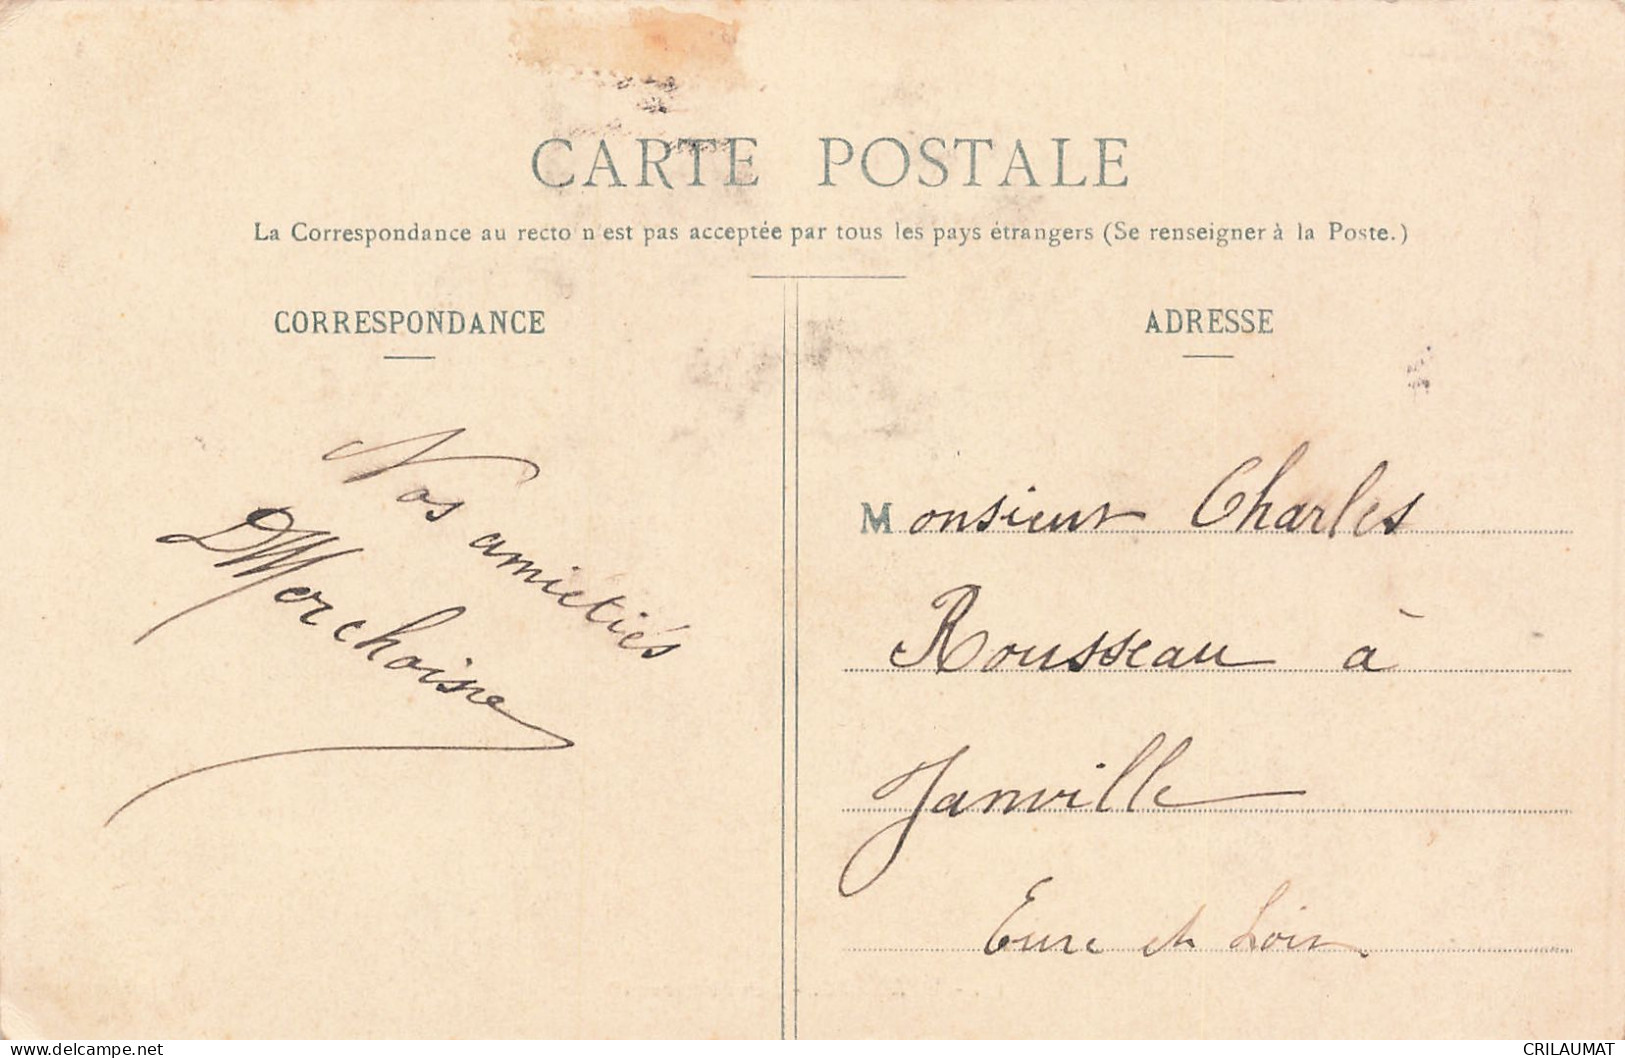 CARTE POSTALE
La Correspondance au recto n'est pas acceptée par tous les pays étrangers (Se renseigner à la Poste.)
CORRESPONDANCE
Nos amitiés
DMerchoisne
ADRESSE
Monsieur Charles
Rousseau à
Janville
Eure et Loir
delcampe.net
CRILAUMAT